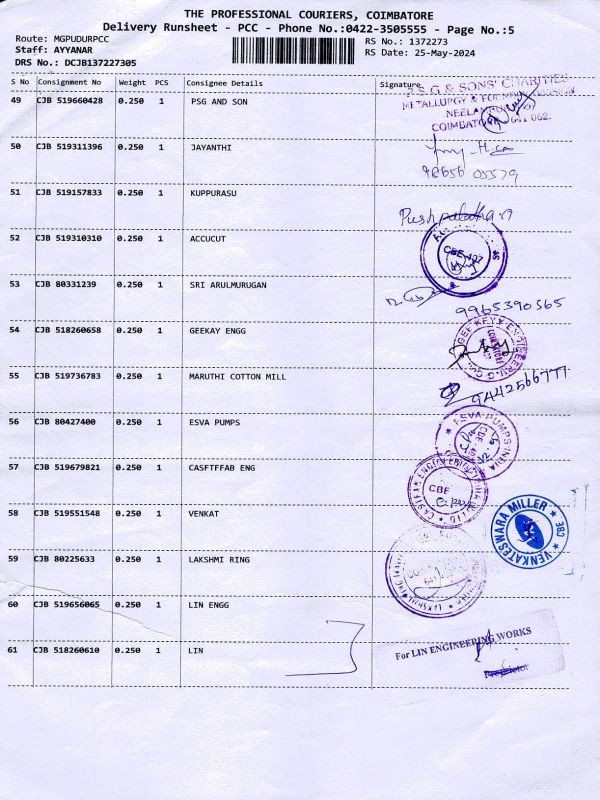 THE PROFESSIONAL COURIERS, COIMBATORE
Delivery Runsheet - PCC - Phone No.:0422-3505555 - Page No.:5
Route: MGPUDURPCC
Staff: AYYANAR
DRS No.: DCJB137227305
RS No.: 1372273
RS Date: 25-May-2024
S No Consignment No Weight PCS Consignee Details Signature
49 CJB 519660428 0.250 1 PSG AND SON
P.S.G & SONS' CHARITIES
METALLURGY &
NEELAM
COIMBATORE 641 062.
50 CJB 519311396 0.250 1 JAYANTHI
51 CJB 519157833 0.250 1 KUPPURASU
52 CJB 519310310 0.250 1 ACCUCUT
CBE-407
53 CJB 80331239 0.250 1 SRI ARULMURUGAN
9965390565
54 CJB 518260658 0.250 1 GEEKAY ENGG
55 CJB 519736783 0.250 1 MARUTHI COTTON MILL
56 CJB 80427400 0.250 1 ESVA PUMPS
ESVA PUMPS INDIA
CBE
57 CJB 519679821 0.250 1 CASFTFFAB ENG
CBE
58 CJB 519551548 0.250 1 VENKAT
VENKATESWARA MILLER
CBE
59 CJB 80225633 0.250 1 LAKSHMI RING
60 CJB 519656065 0.250 1 LIN ENGG
61 CJB 518260610 0.250 1 LIN
For LIN ENGINEERING WORKS
Proprietor